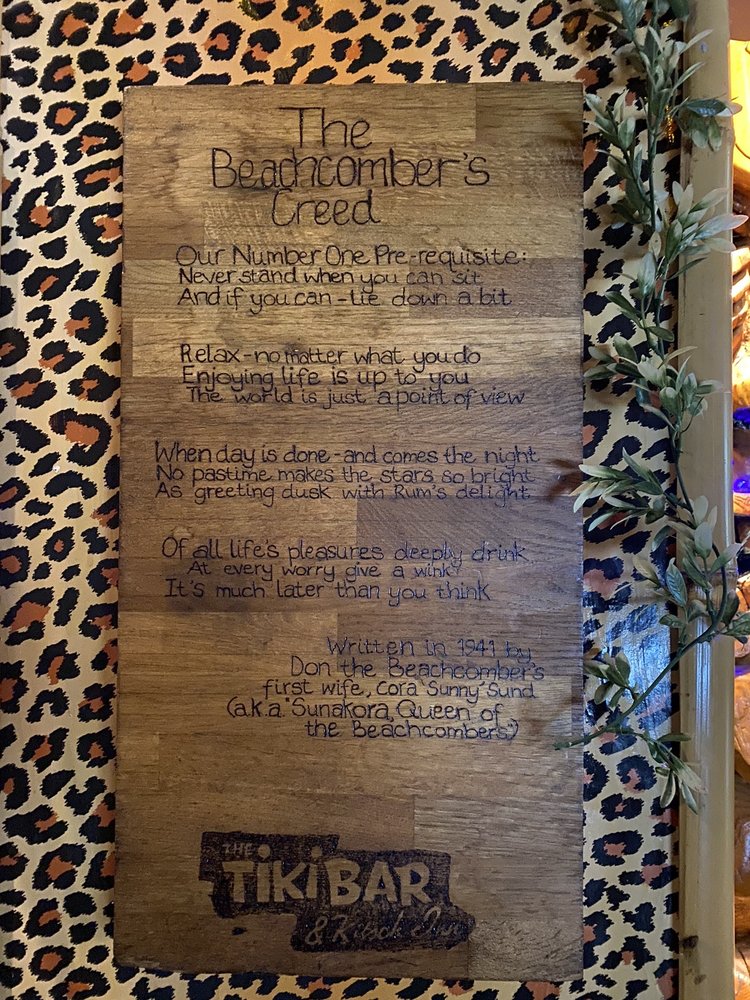 The
Beachcomber's
Creed
Our Number One Pre-requisite:
Never stand when you can sit
And if you can - lie down a bit
Relax - no matter what you do
Enjoying life is up to you
The world is just a point of view
When day is done - and comes the night
No pastime makes the stars so bright
As greeting dusk with Rum's delight
Of all life's pleasures deeply drink
At every worry give a wink
It's much later than you think
Written in 1941 by
Don the Beachcomber's
first wife, Cora "Sunny" Sund
(a.k.a. "Sunakora, Queen of
the Beachcombers")
THE
TIKI BAR
& Kitsch Inn